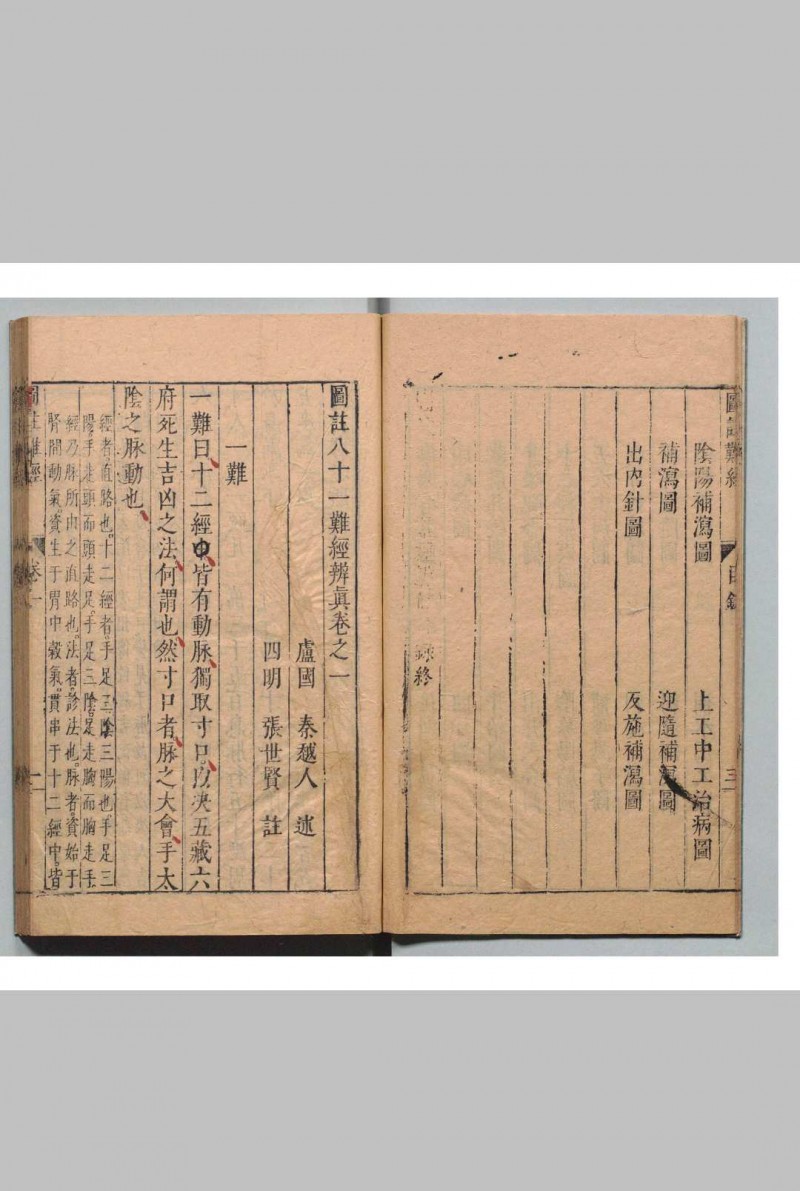 陰陽補瀉圖 上工中工治病圖
補瀉圖 迎隨補瀉圖
出內針圖 反施補瀉圖
終
圖註八十一難經辨眞卷之一
盧國 秦越人 述
四明 張世賢 註
一難
一難曰十二經中皆有動脉獨取寸口以決五藏六
府死生吉凶之法何謂也然寸口者脉之大會手太
陰之脉動也
經者直路也十二經者手足三陰三陽也手足三
陽手走頭而頭走足手足三陰足走胸而胸走手
經乃脉所由之直路也法者診法也脉者資始于
腎間動氣資生于胃中穀氣貫串于十二經中皆
圖註難經 卷一 一